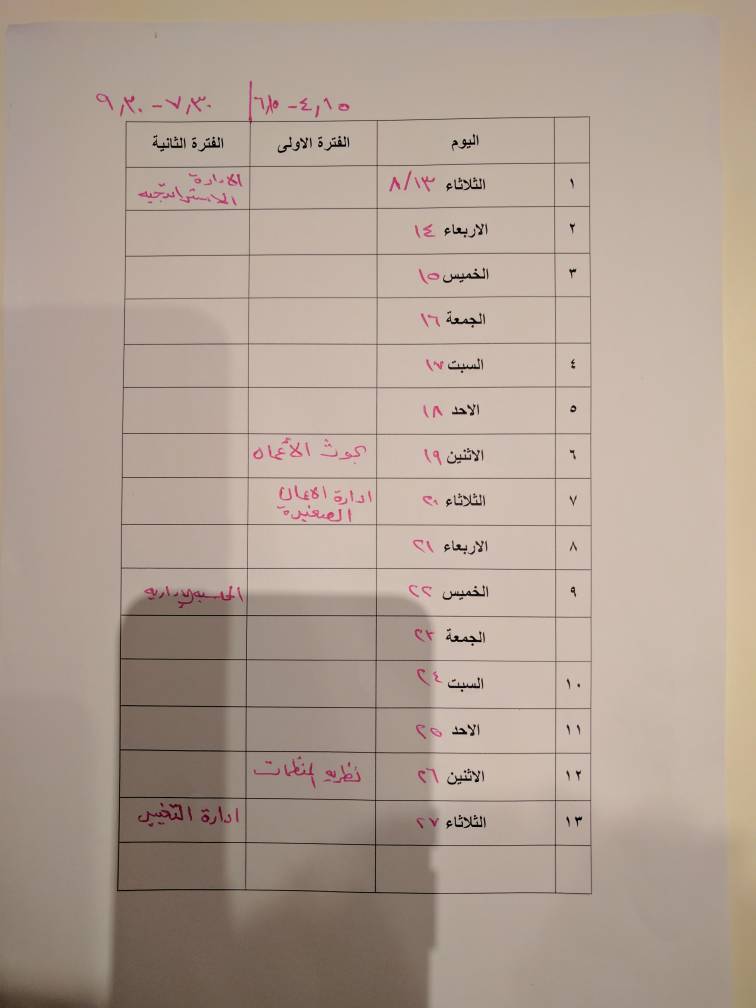 ٤,١٥ - ٦,١٥ | ٧,٣٠ - ٩,٣٠
اليوم الفترة الاولى الفترة الثانية
١ الثلاثاء ٨/١٣ الادارة
الاستراتيجيه
٢ الاربعاء ١٤
٣ الخميس ١٥
الجمعة ١٦
٤ السبت ١٧
٥ الاحد ١٨
٦ الاثنين ١٩ بحوث الأعمال
٧ الثلاثاء ٢٠ ادارة الاعمال
الصغيرة
٨ الاربعاء ٢١
٩ الخميس ٢٢ المحاسبه الاداريه
الجمعة ٢٣
١٠ السبت ٢٤
١١ الاحد ٢٥
١٢ الاثنين ٢٦ نظريه المنظمات
١٣ الثلاثاء ٢٧ ادارة التغيير